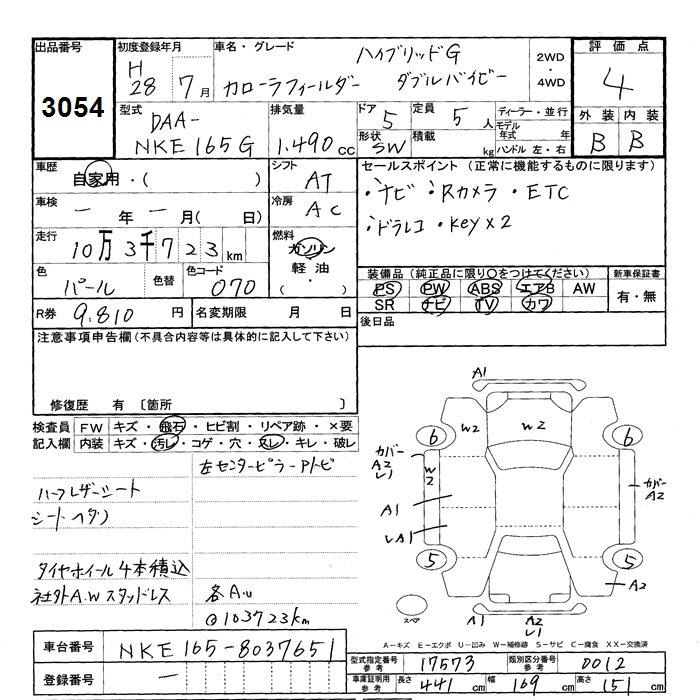 出品番号 初度登録年月 車名・グレード 2WD・4WD 評価点
3054 H28 7月 カローラフィールダー ハイブリッドG ダブルバイビー 4
型式 排気量 ドア 定員 ディーラー・並行 外装 内装
DAA-NKE165G 1.490cc 5 5人 モデル年式 年 B B
形状 SW 積載 kg ハンドル 左・右
車歴 自家用・( ) シフト AT セールスポイント (正常に機能するものに限ります)
車検 一年 一月( 日) 冷房 AC ・ナビ ・Rカメラ ・ETC
・ドラレコ ・Key×2
走行 10万3千723km 燃料 ガソリン 軽油 ( ・ )
色 パール 色替 色コード 070
装備品 (純正品に限り○をつけてください) 新車保証書
PS PW ABS エアB AW 有・無
SR ナビ TV カワ
R券 9.810円 名変期限 月 日 後日品
注意事項申告欄 (不具合内容等は具体的に記入して下さい)
修復歴 有 〔箇所
検査員 FW キズ・飛石・ヒビ割・リペア跡・×要
記入欄 内装 キズ・汚レ・コゲ・穴・スレ・キレ・破レ
左センターピラーアトビ
ハーフレザーシート
シートヘタリ
タイヤホイール4本積込
社外A.Wスタッドレス 各A.U
@103723km
A1
W2 W2
6 6
カバーA2 L1 W2 カバーA2
A1
LA1
5 5
A2
スペア A1 A2 L1
A-キズ E-エクボ U-凹み W-補修跡 S-サビ C-腐食 XX-交換済
車台番号 NKE165-8037651
登録番号 一
型式指定番号参考 17573 類別区分番号参考 0012
車庫証明用参考 長さ 441cm 幅 169cm 高さ 151cm